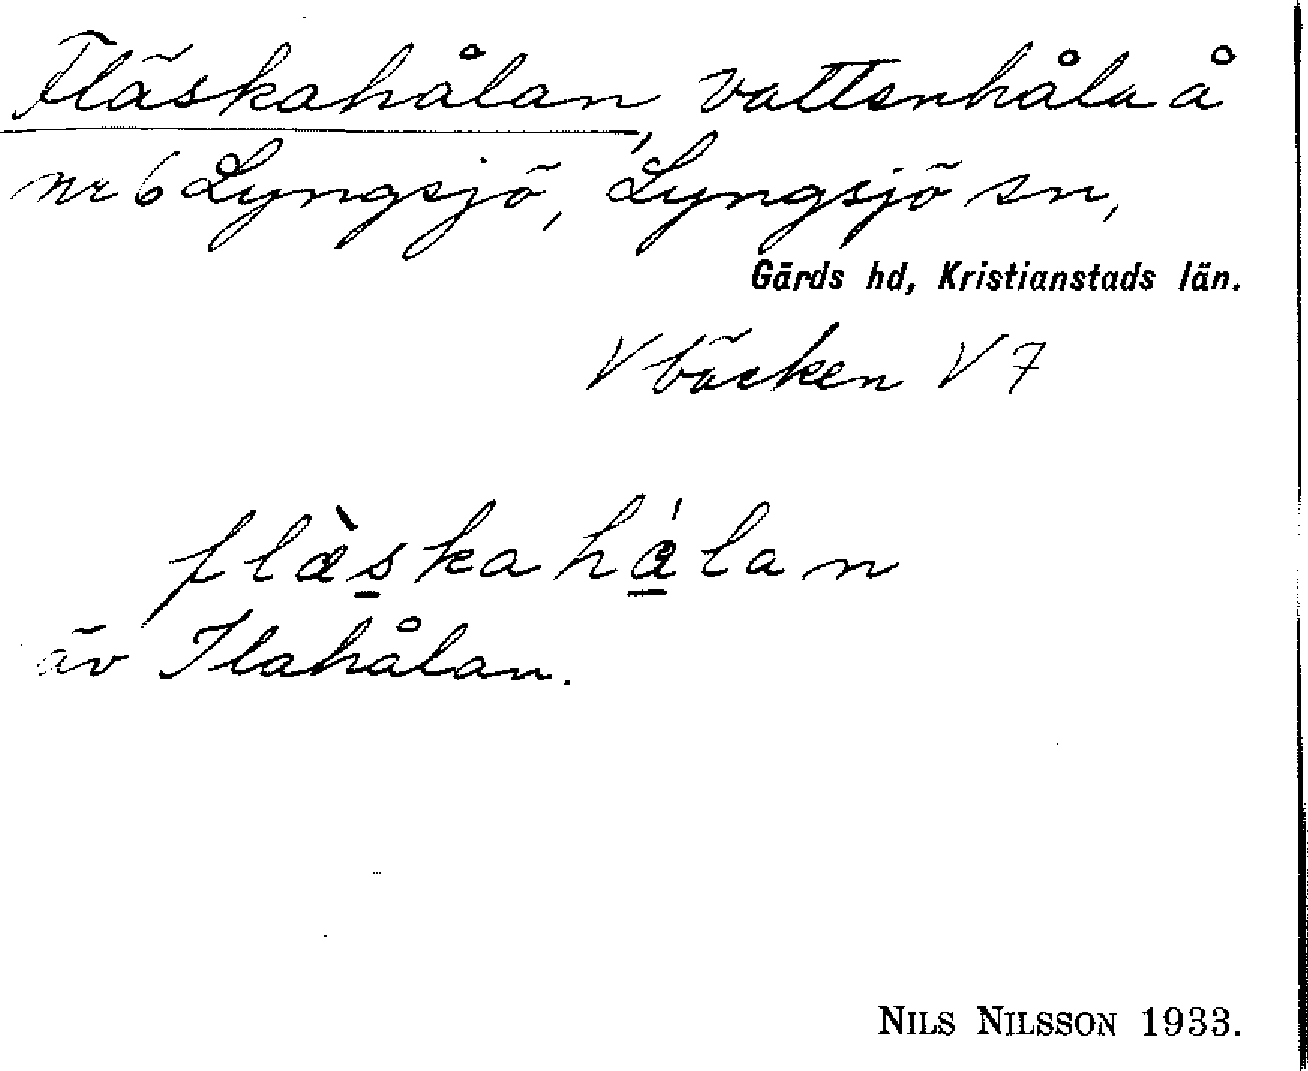 Fläskahålan, vattenhåla å
nr 6 Lyngsjö, Lyngsjö sn,
Gärds hd, Kristianstads län.
V bäcken V 7
flæ̀skahálan
äv Ilahålan.
NILS NILSSON 1933.